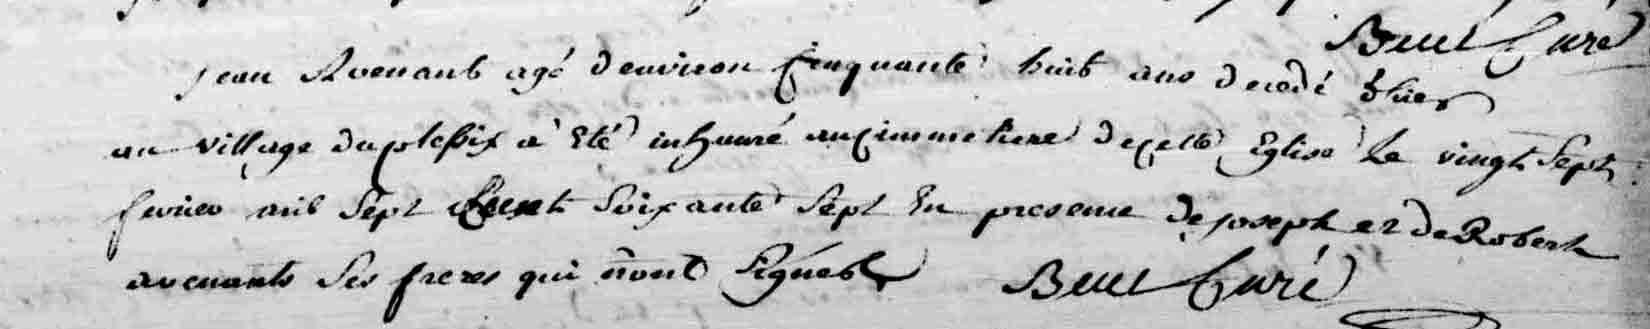 Buet Curé
jean Avenant agé denviron Cinquante huit ans decedé hier
au village duplessix a Eté inhumé aucimmetiere decette Eglise le vingt Sept
fevrier mil Sept Cent Soixante Sept En presence de joseph et de Robert
avenants Ses freres qui n'ont Signés Buet Curé